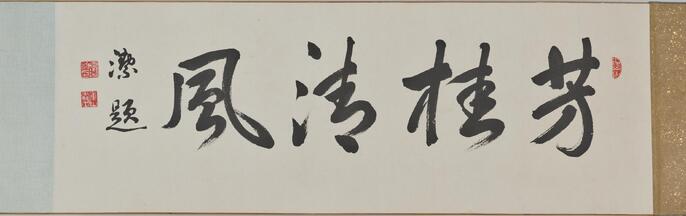 芳桂清風
潔題